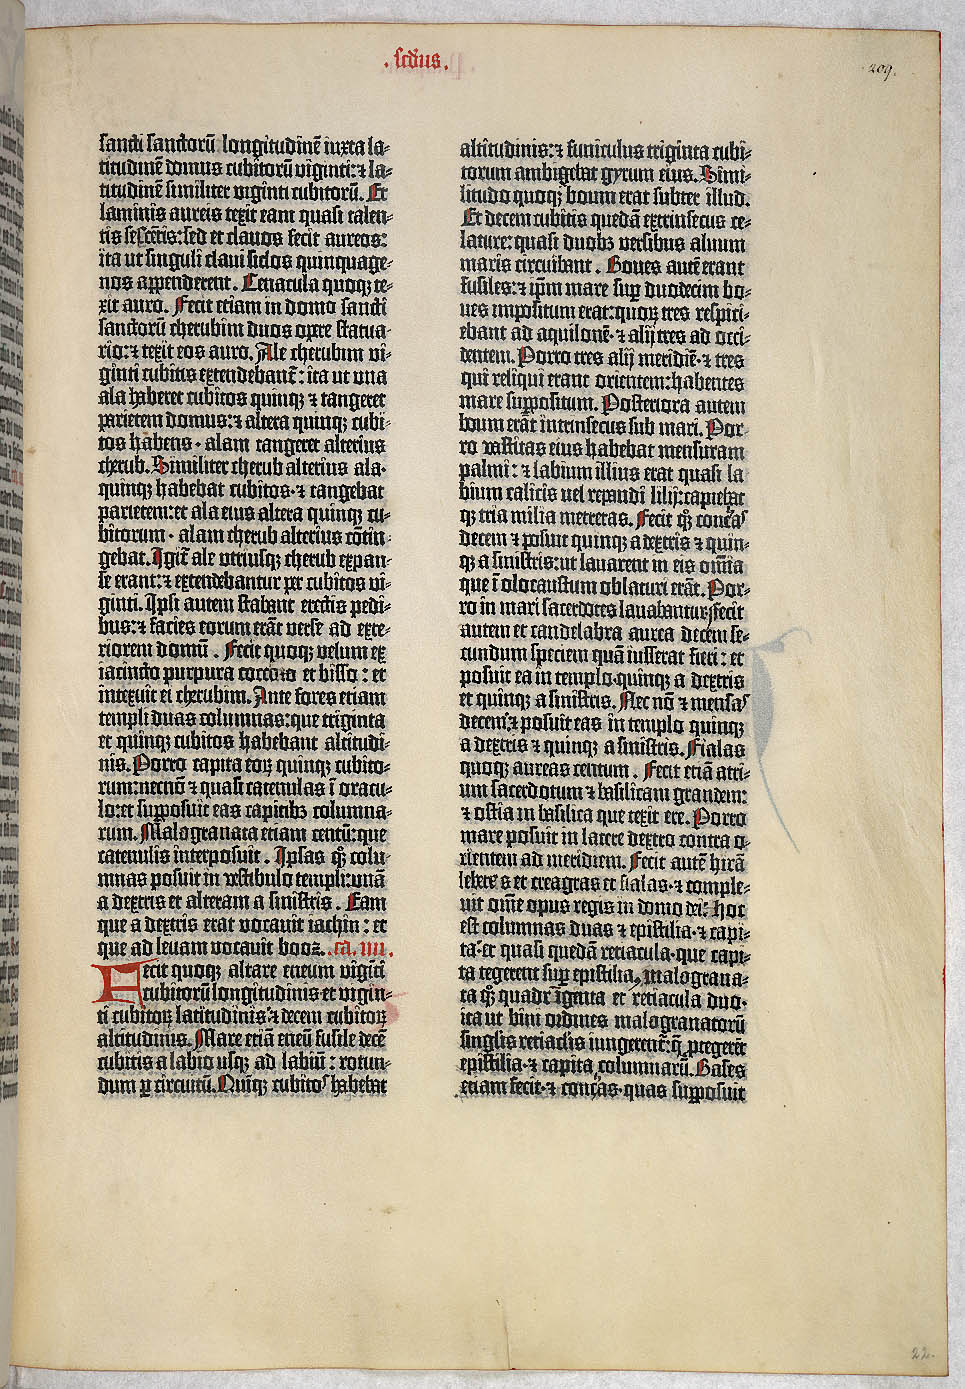 .scđus.
209.
sancti sanctorū longitudinē iuxta la-
titudinē domus cubitorū viginti: ⁊ la-
titudinē similiter viginti cubitorū. Et
laminis aureis texit eam quasi talen-
tis sescētis: sed et clavos fecit aureos:
ita ut singuli claui siclos quinquage-
nos appenderent. Cenacula quoqꝫ te-
xit auro. Fecit etiam in domo sancti
sanctorū cherubim duos opere statua-
rio: ⁊ texit eos auro. Ale cherubim vi-
ginti cubitis extendebant̄: ita ut una
ala haberet cubitos quinqꝫ ⁊ tangeret
parietem domus: ⁊ altera quinqꝫ cubi-
tos habens · alam tangeret alterius
cherub. Similiter cherub alterius ala ·
quinqꝫ habebat cubitos · ⁊ tangebat
parietem: et ala eius altera quinqꝫ cu-
bitorum · alam cherub alterius cōtin-
gebat. Igit̄ ale utriusqꝫ cherub expan-
se erant: ⁊ extendebantur per cubitos vi-
ginti. Ipsi autem stabant erectis pedi-
bus: ⁊ facies eorum erāt verse ad exte-
riorem domū. Fecit quoqꝫ velum ex
iacincto purpura cocco et bisso: et
intexuit ei cherubim. Ante fores etiam
templi duas columnas: que triginta
et quinqꝫ cubitos habebant altitudi-
nis. Porro capita eoꝝ quinqꝫ cubito-
rum: necnō ⁊ quasi catenulas ī oracu-
lo: et supposuit eas capitibꝫ columna-
rum. Malogranata etiam centū: que
catenulis interposuit. Ipsas qꝫ colu-
mnas posuit in vestibulo templi: unā
a dextris et alteram a sinistris. Eam
que a dextris erat vocauit iachin: et
que ad leuam vocauit booz. .ca. iiii.
Fecit quoqꝫ altare eneum viginti
cubitorū longitudinis et vigin-
ti cubitoꝝ latitudinis ⁊ decem cubitoꝝ
altitudinis. Mare etiā eneū fusile decē
cubitis a labio usqꝫ ad labiū: rotun-
dum ꝑ circuitū. Quinqꝫ cubitos habebat
altitudinis: ⁊ funiculus triginta cubi-
torum ambigebat gyrum eius. Simi-
litudo quoqꝫ boum erat subter illud.
Et decem cubitis quedā extrinsecus ce-
lature: quasi duobꝫ versibus aluum
maris circuibant. Boues autē erant
fusiles: ⁊ ip̄m mare sup̄ duodecim bo-
ues impositum erat: quoꝝ tres respici-
ebant ad aquilonē · ⁊ alij tres ad occi-
dentem. Porro tres alij meridiē · ⁊ tres
qui reliqui erant orientem: habentes
mare suppositum. Posteriora autem
boum erāt intrinsecus sub mari. Por-
ro vastitas eius habebat mensuram
palmi: ⁊ labium illius erat quasi la
bium calicis uel repandi lilij: capiebat
qꝫ tria milia metretas. Fecit qꝫ concas
decem ⁊ posuit quinqꝫ a dextris ⁊ quin-
qꝫ a sinistris: ut lauarent in eis om̄ia
que ī olocaustum oblaturi erāt. Por-
ro in mari sacerdotes lauabantur. Fecit
autem et candelabra aurea decem se-
cundum speciem quā iusserat fieri: et
posuit ea in templo · quinqꝫ a dextris
et quinqꝫ a sinistris. Nec nō ⁊ mensas
decem: ⁊ posuit eas in templo quinqꝫ
a dextris ⁊ quinqꝫ a sinistris. Fialas
quoqꝫ aureas centum. Fecit etiā atri-
um sacerdotum ⁊ basilicam grandem:
⁊ ostia in basilica que texit ere. Porro
mare posuit in latere dextro contra o-
rientem ad meridiem. Fecit autē hirā
lebetes et creagras et fialas · ⁊ comple-
uit om̄e opus regis in domo dei: hoc
est columnas duas ⁊ epistilia · ⁊ capi-
ta · et quasi quedā retiacula · que capi-
ta tegerent sup̄ epistilia. Malograna-
ta qꝫ quadrīgenta et retiacula duo ·
ita ut bini ordines malogranatorū
singlis retiaclis iungerent̄: q̄ ꝓtegerēt
epistilia · ⁊ capita columnarū. Bases
etiam fecit · ⁊ concas · quas supposuit
22.